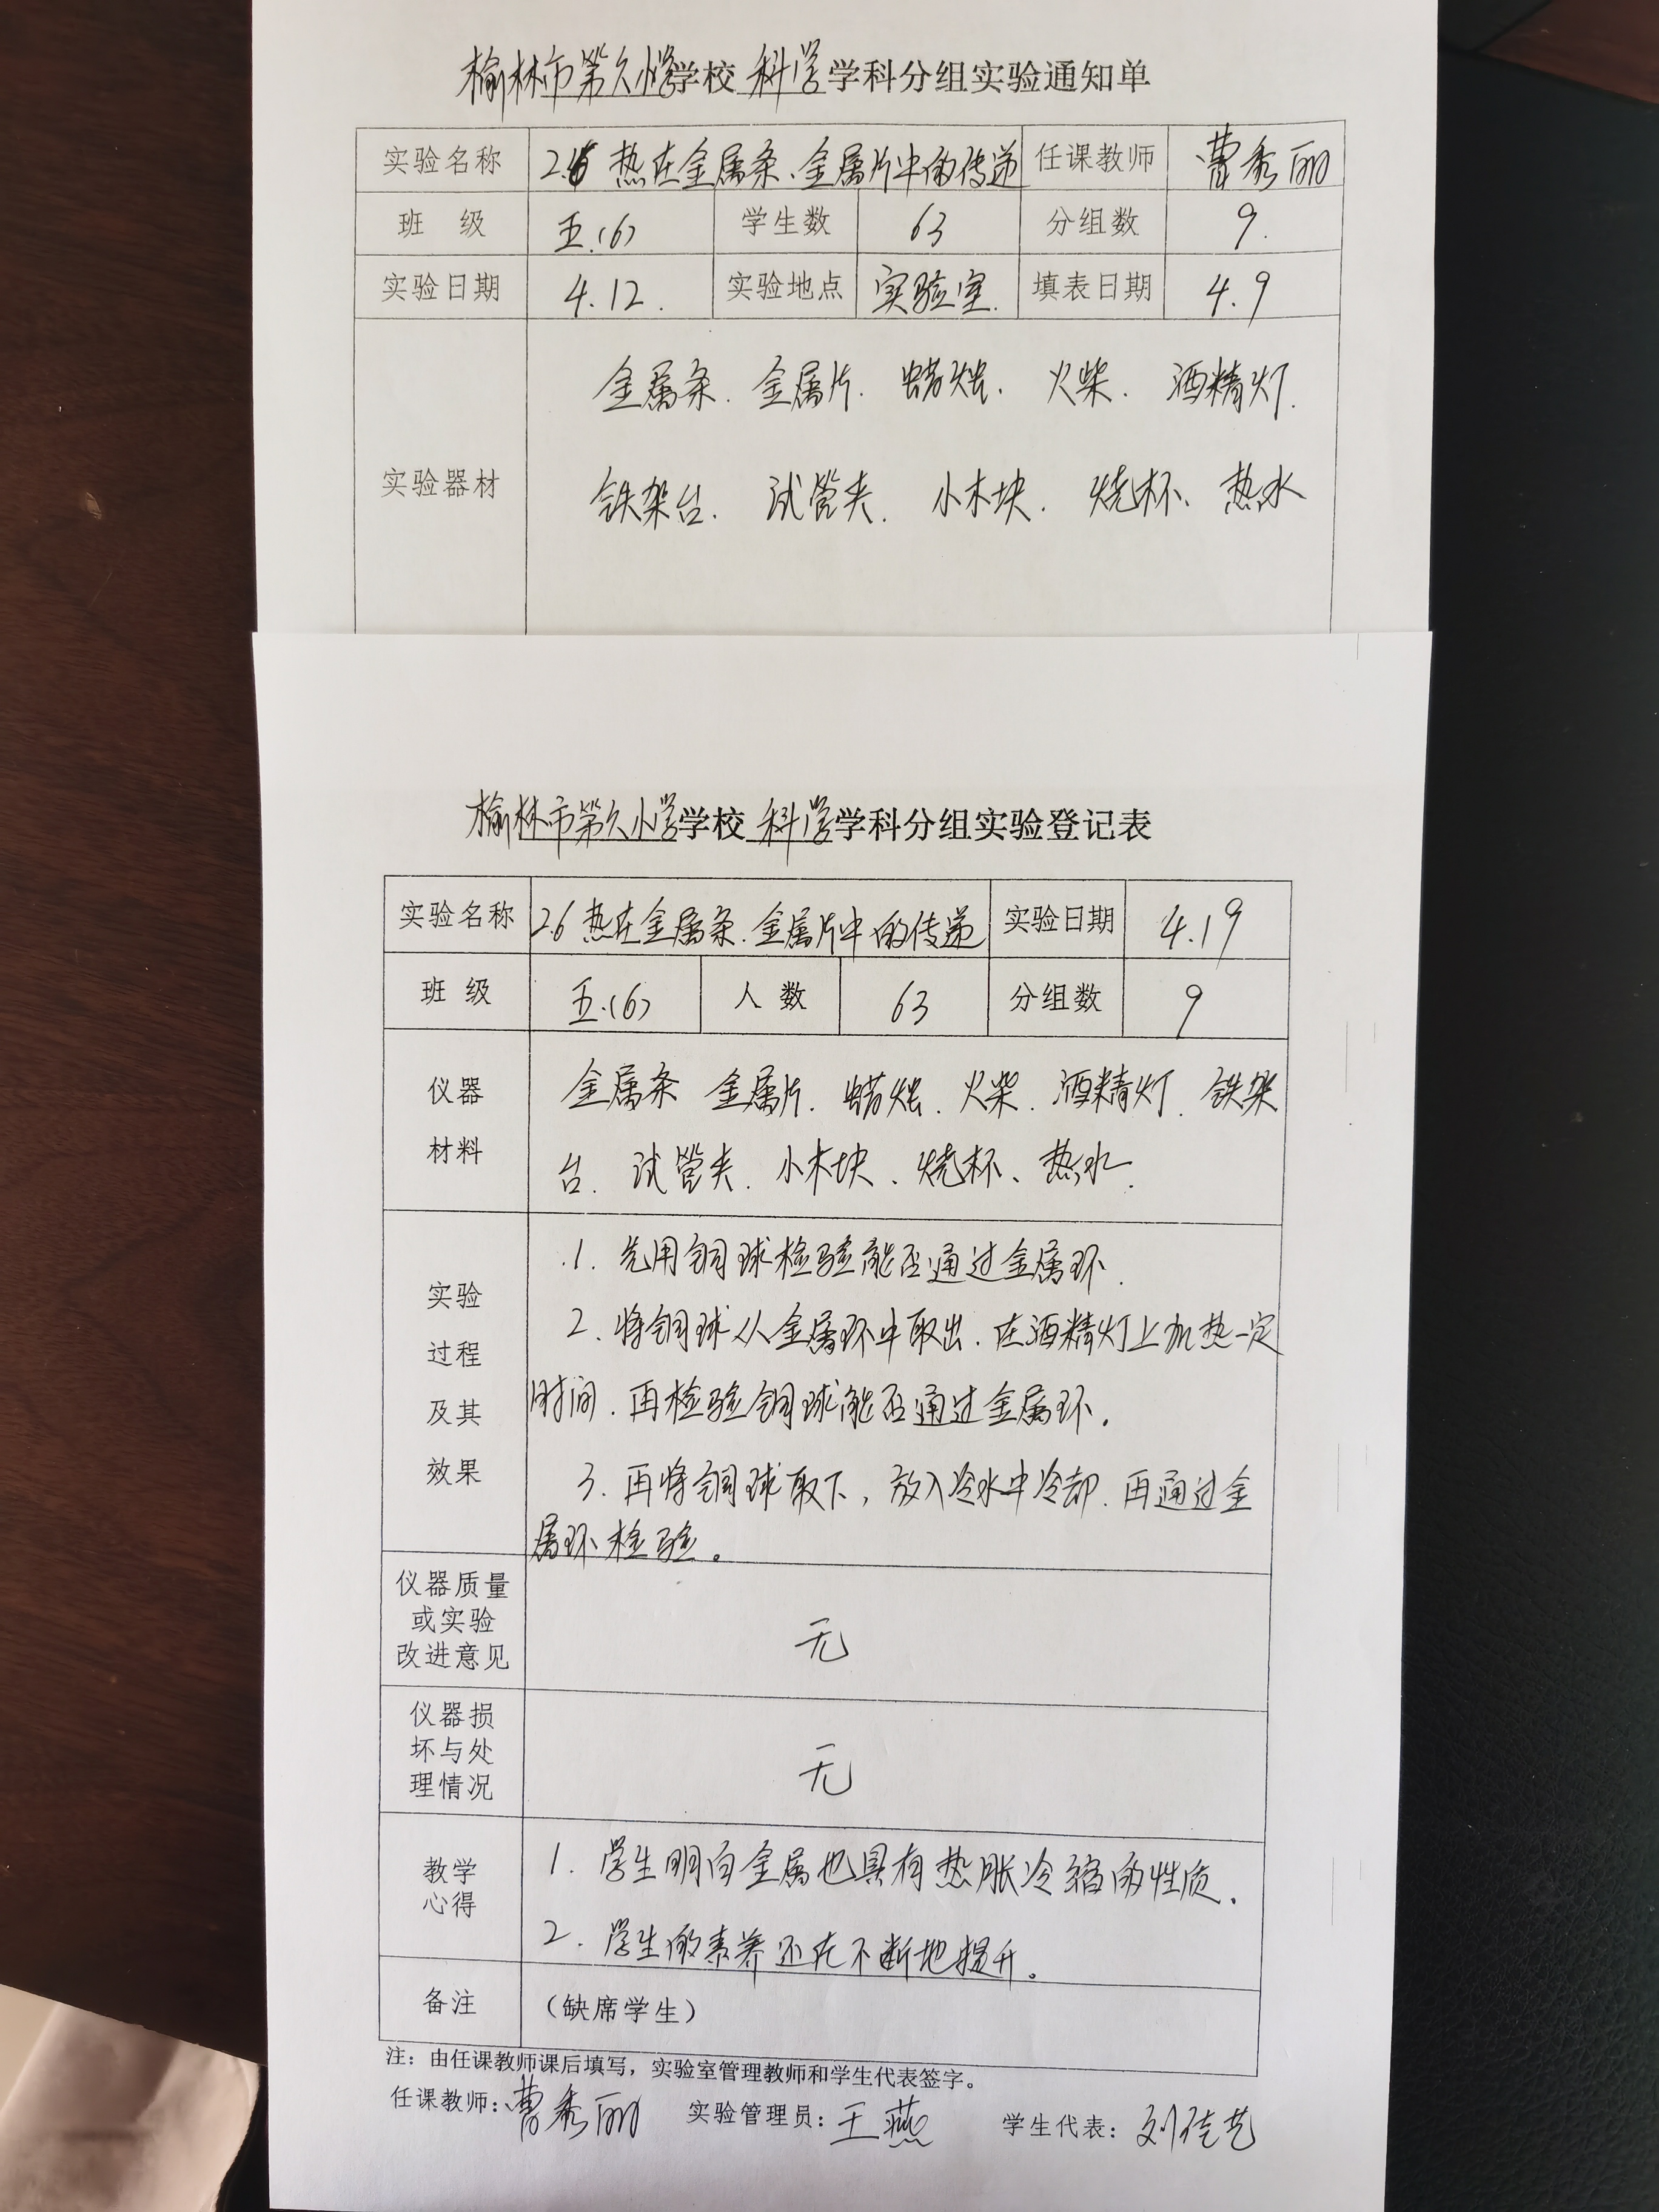 榆林市第九小学学校 科学 学科分组实验通知单
实验名称 2.6 热在金属条、金属片中的传递 任课教师 曹秀丽
班 级 五.(6) 学生数 63 分组数 9.
实验日期 4.12. 实验地点 实验室. 填表日期 4.9
金属条. 金属片. 蜡烛. 火柴. 酒精灯.
实验器材
铁架台. 试管夹. 小木块. 烧杯、热水
榆林市第九小学学校 科学 学科分组实验登记表
实验名称 2.6 热在金属条.金属片中的传递 实验日期 4.19
班 级 五.(6) 人 数 63 分组数 9
仪器 金属条 金属片. 蜡烛. 火柴. 酒精灯. 铁架
材料 台. 试管夹. 小木块、烧杯、热水.
实验
过程
及其
效果
1. 先用铜球检验能否通过金属环.
2. 将铜球从金属环中取出.在酒精灯上加热一定
时间.再检验铜球能否通过金属环.
3. 再将铜球取下,放入冷水中冷却.再通过金
属环检验。
仪器质量
或实验
改进意见
无
仪器损
坏与处
理情况
无
教学
心得
1. 学生明白金属也具有热胀冷缩的性质.
2. 学生的素养还在不断地提升。
备注 (缺席学生)
注：由任课教师课后填写，实验室管理教师和学生代表签字。
任课教师：曹秀丽 实验管理员：王燕 学生代表：刘佳艺